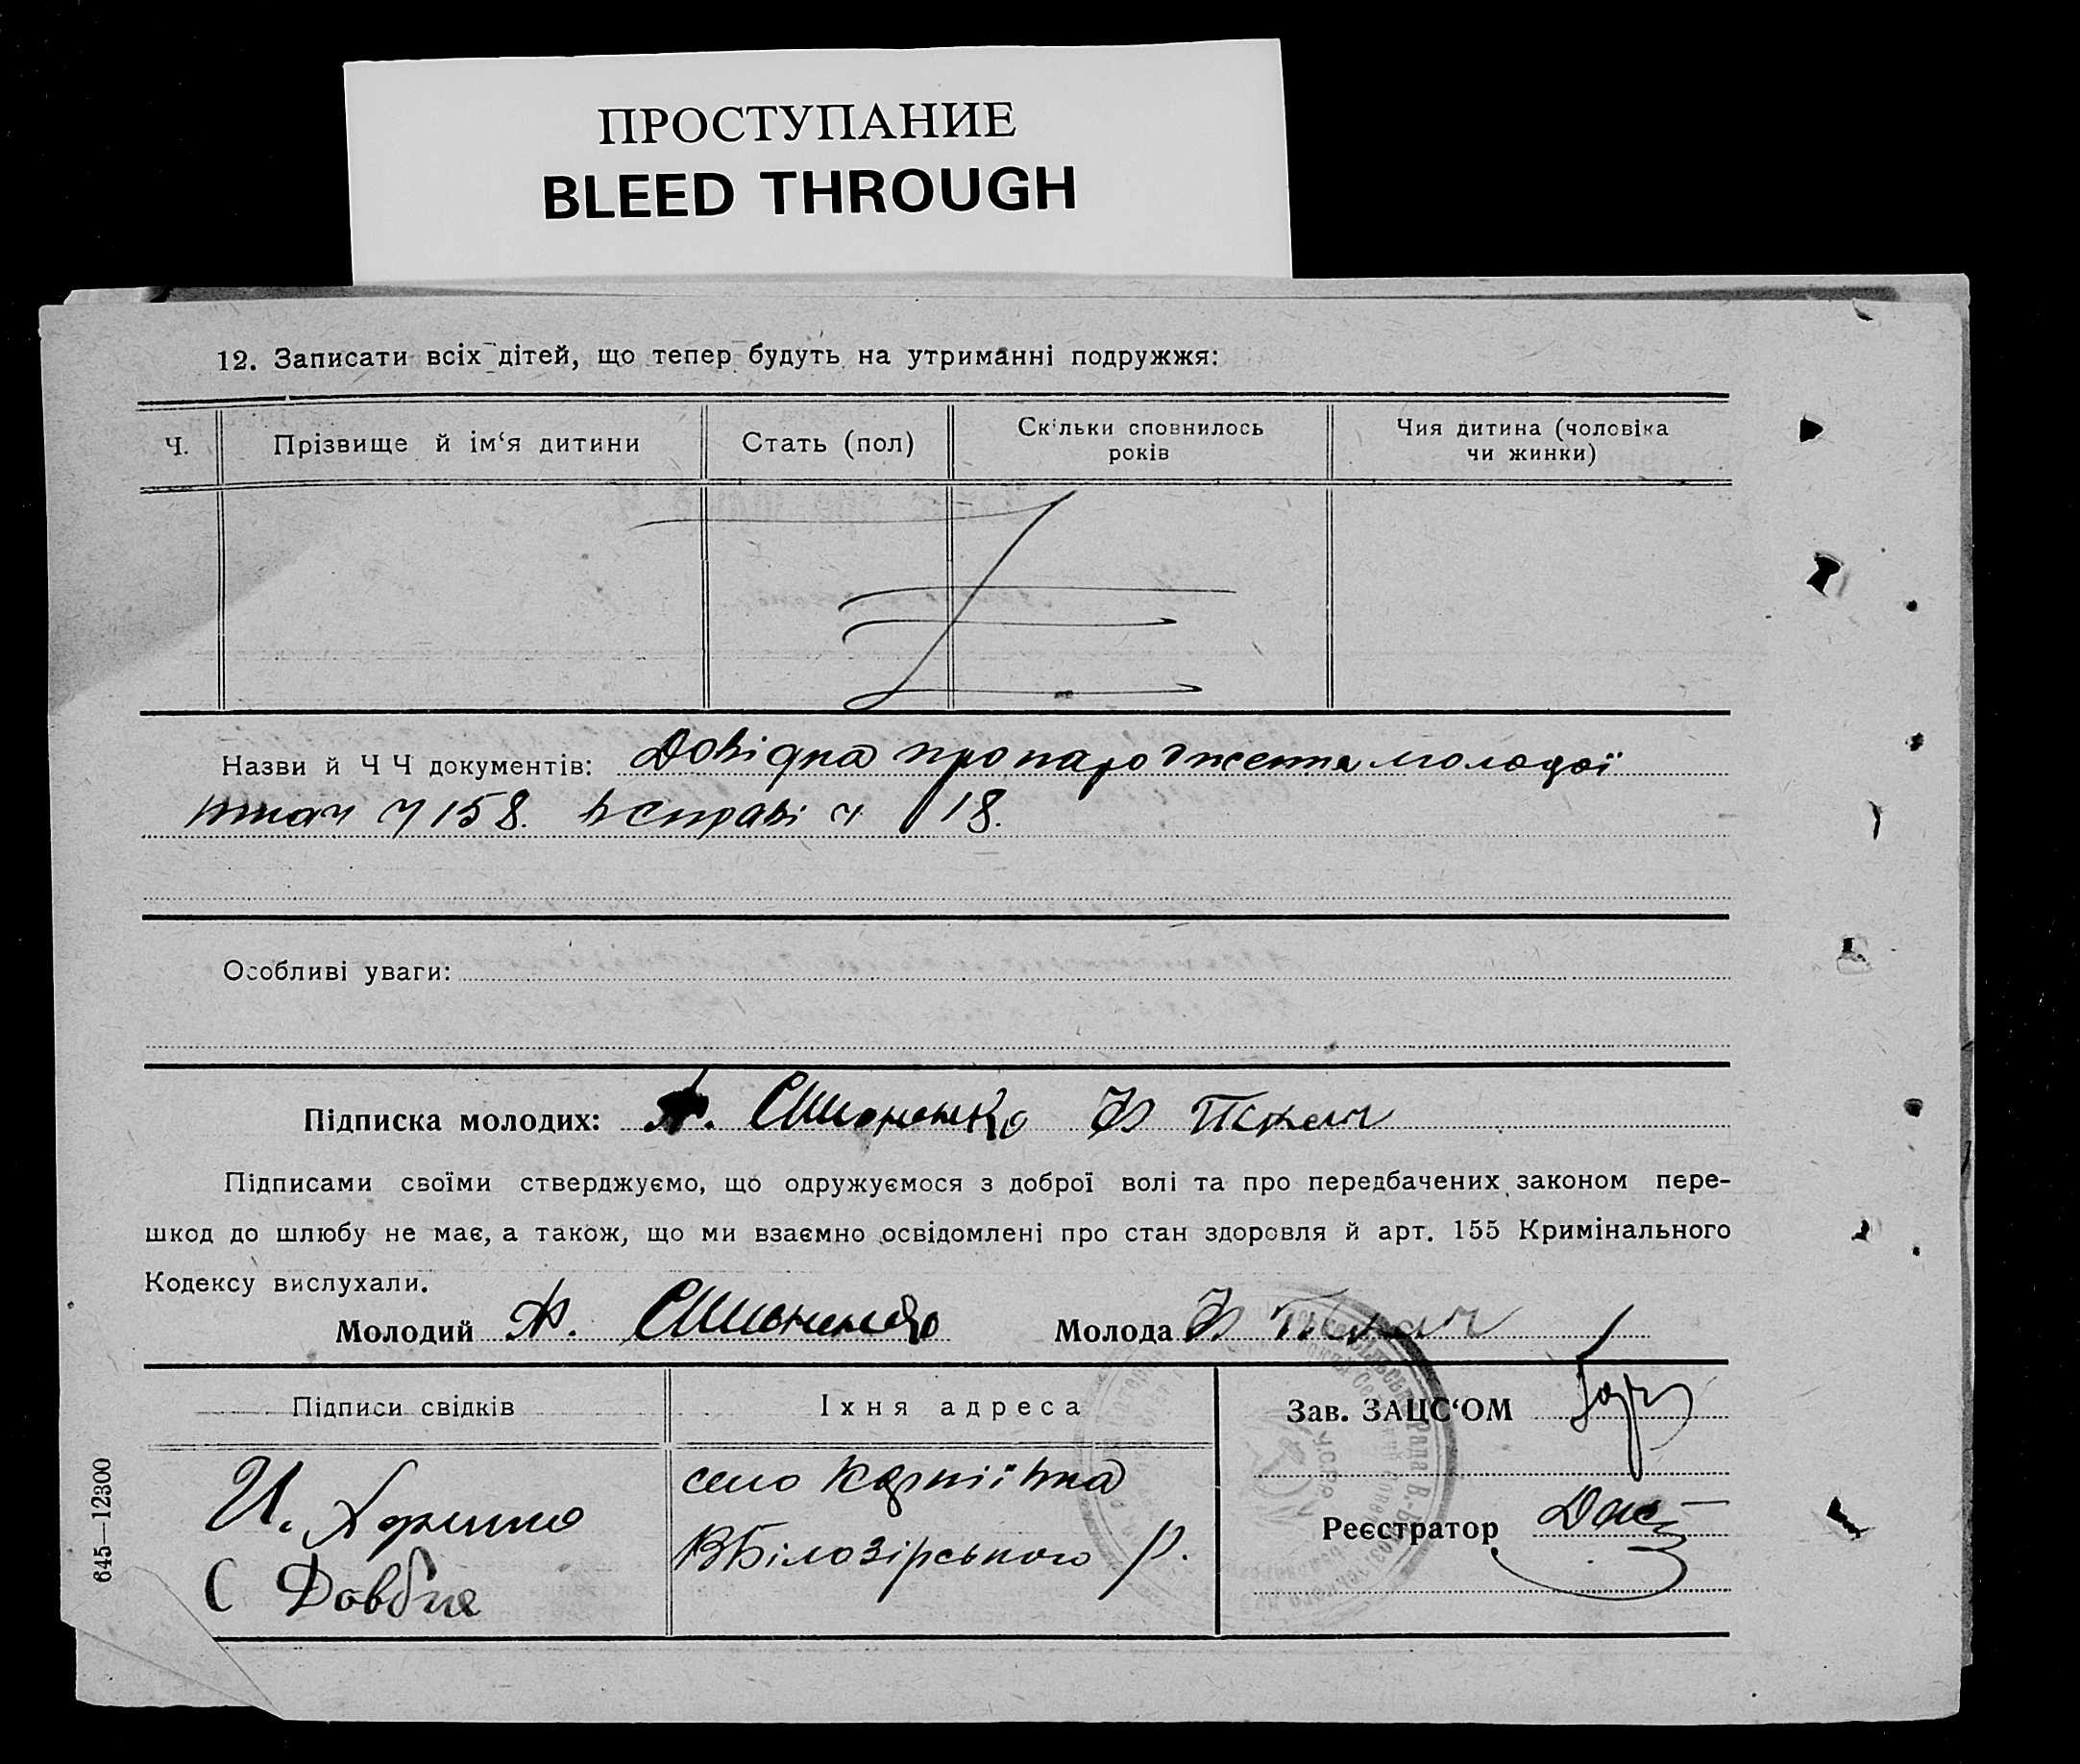 ПРОСТУПАНИЕ
BLEED THROUGH
12. Записати всіх дітей, що тепер будуть на утриманні подружжя:
Ч. Прізвище й ім‘я дитини Стать (пол) Скільки сповнилось років Чия дитина (чоловіка чи жинки)
Назви й Ч Ч документів: Довідка про народження молодої
ч 158. в справі ч 18.
Особливі уваги:
Підписка молодих: А. Симоненко
Підписами своїми стверджуємо, що одружуємося з доброї волі та про передбачених законом пере-
шкод до шлюбу не має, а також, що ми взаємно освідомлені про стан здоровля й арт. 155 Кримінального
Кодексу вислухали.
Молодий А. Симоненко Молода
Підписи свідків Їхня адреса Зав. ЗАЦС‘ОМ
село
И. ВБілозірського р. Реєстратор
С Довбня
645—12300